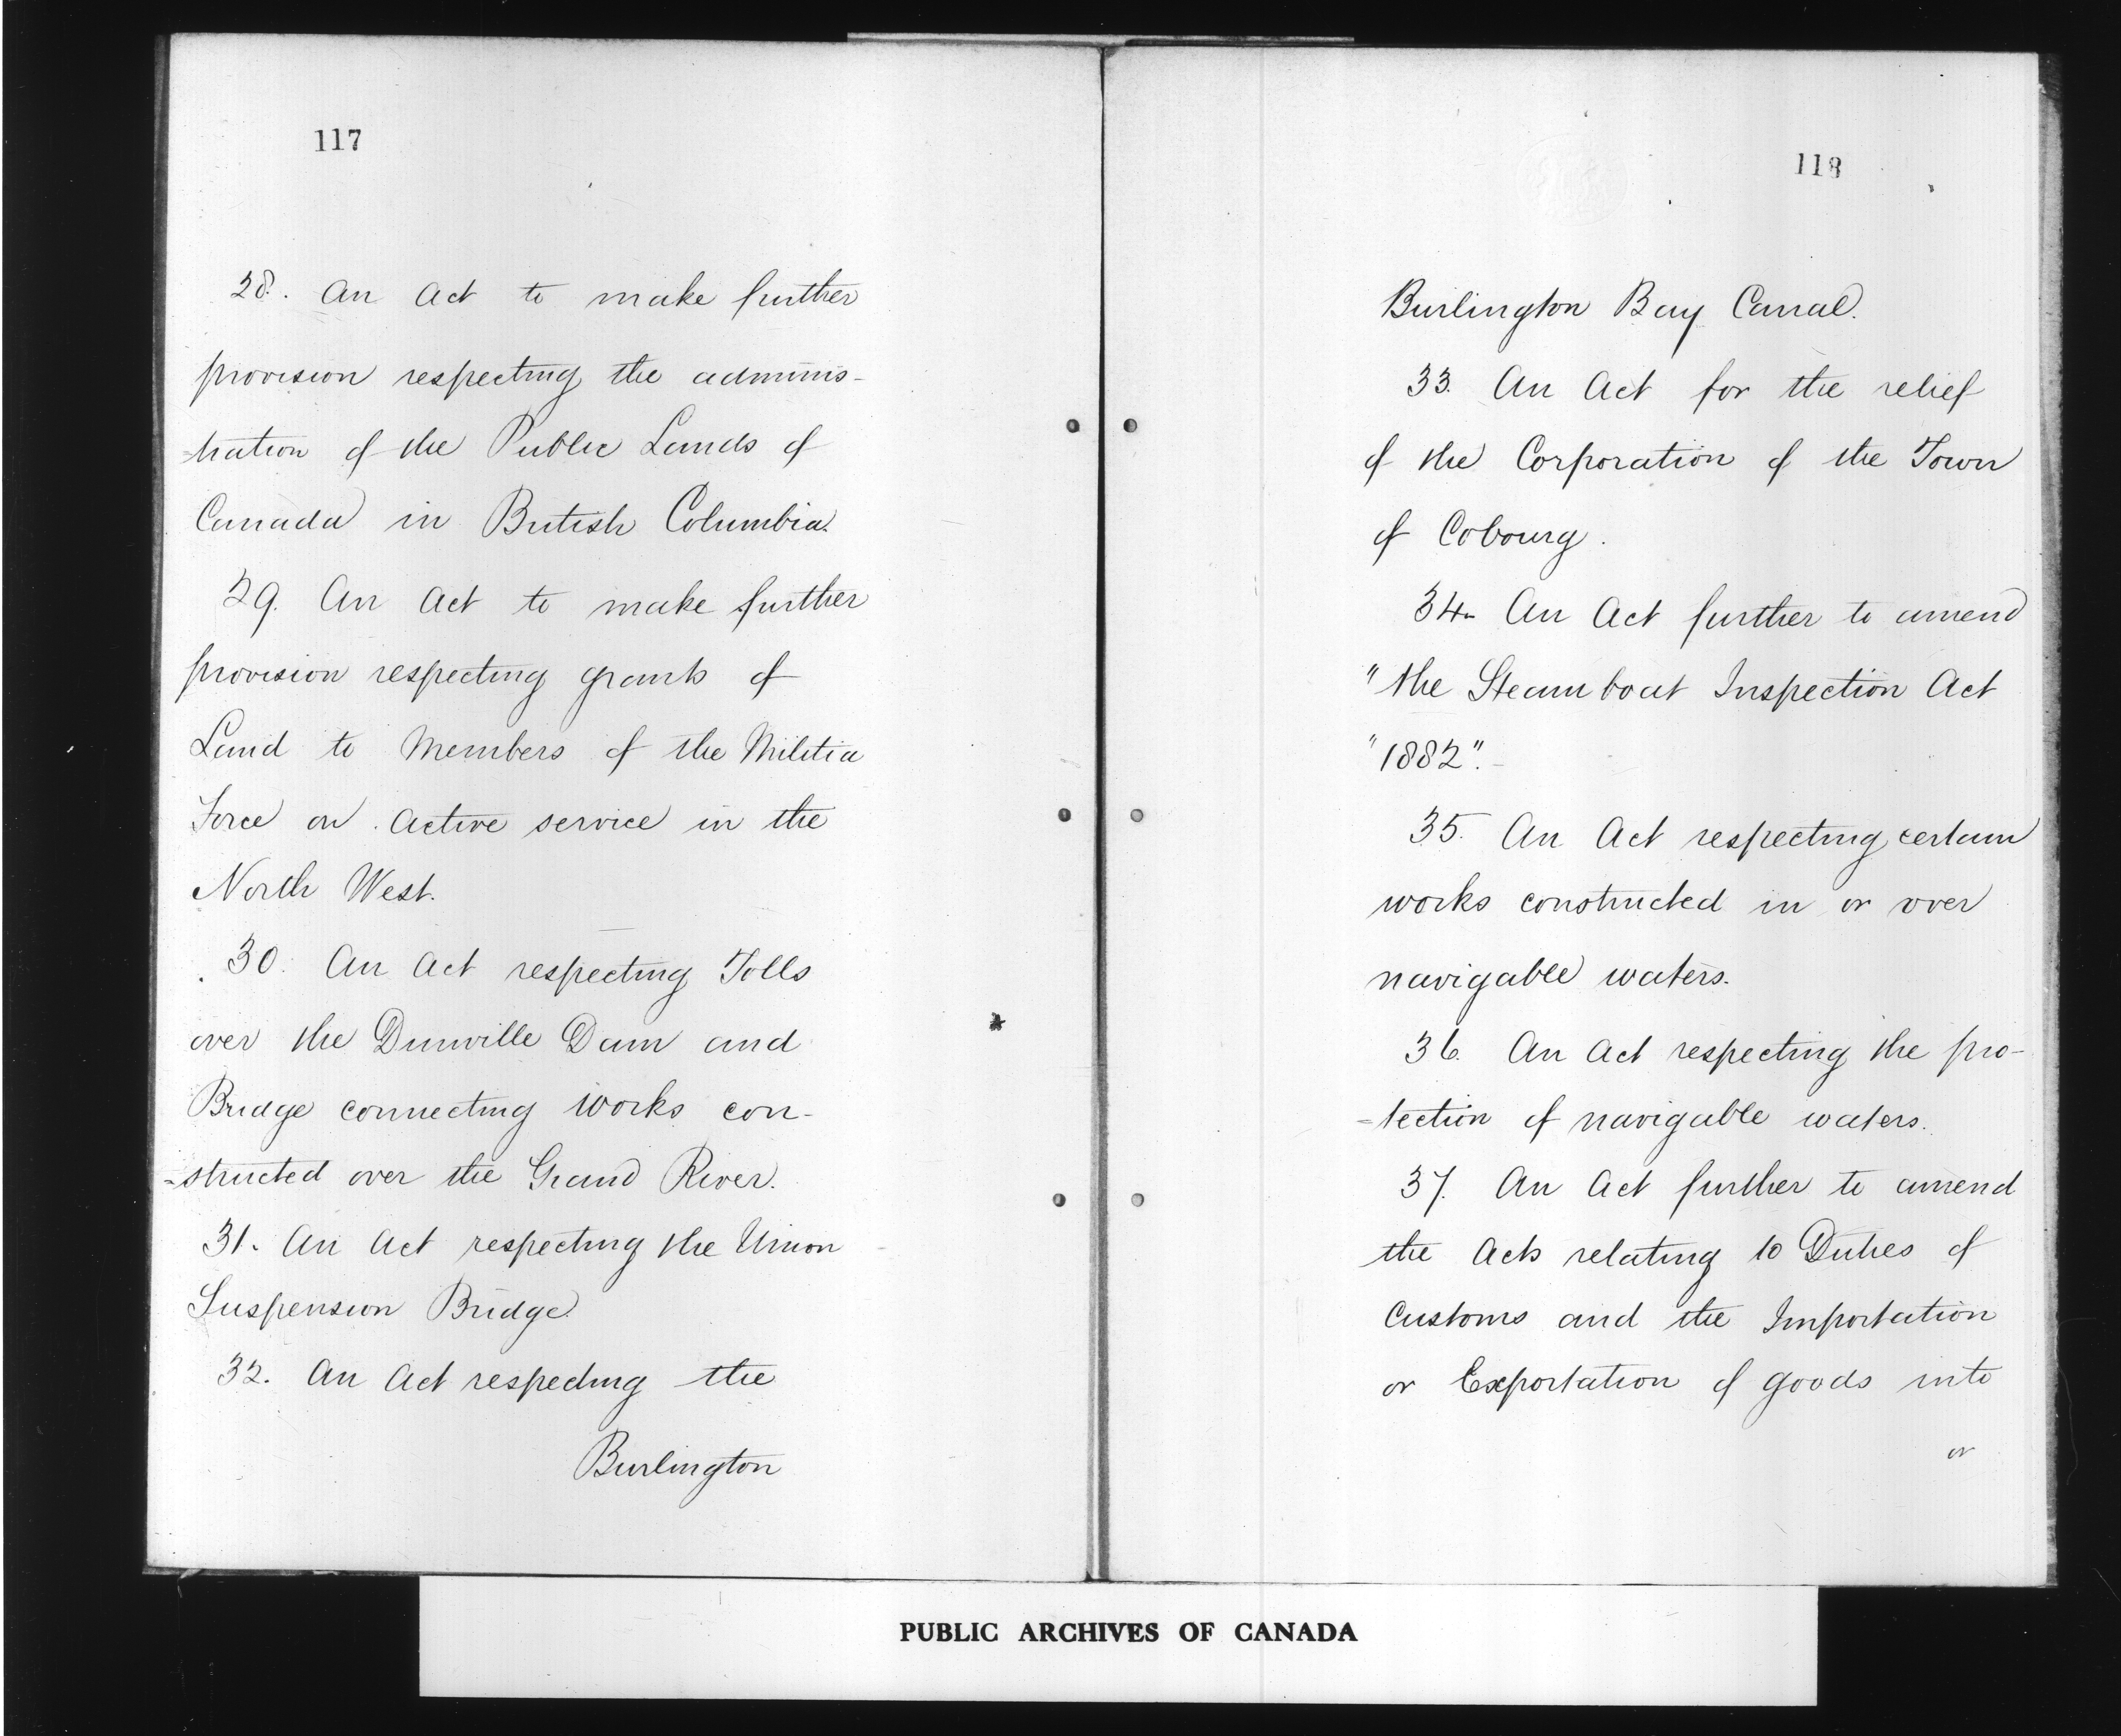 117
28. An Act to make further
provision respecting the adminis-
=tration of the Public Lands of
Canada in British Columbia.
29. An Act to make further
provision respecting grants of
Land to Members of the Militia
Force on Active service in the
North West.
30. An Act respecting Tolls
over the Dunville Dam and
Bridge connecting works con-
=structed over the Grand River.
31. An Act respecting the Union
Suspension Bridge.
32. An Act respecting the
Burlington
118
Burlington Bay Canal.
33. An Act for the relief
of the Corporation of the Town
of Cobourg.
34. An Act further to amend
"the Steamboat Inspection Act
"1882".
35. An Act respecting certain
works constructed in or over
navigable waters.
36. An Act respecting the pro-
=tection of navigable waters.
37. An Act further to amend
the Acts relating to Duties of
Customs and the Importation
or Exportation of goods into
or
PUBLIC ARCHIVES OF CANADA